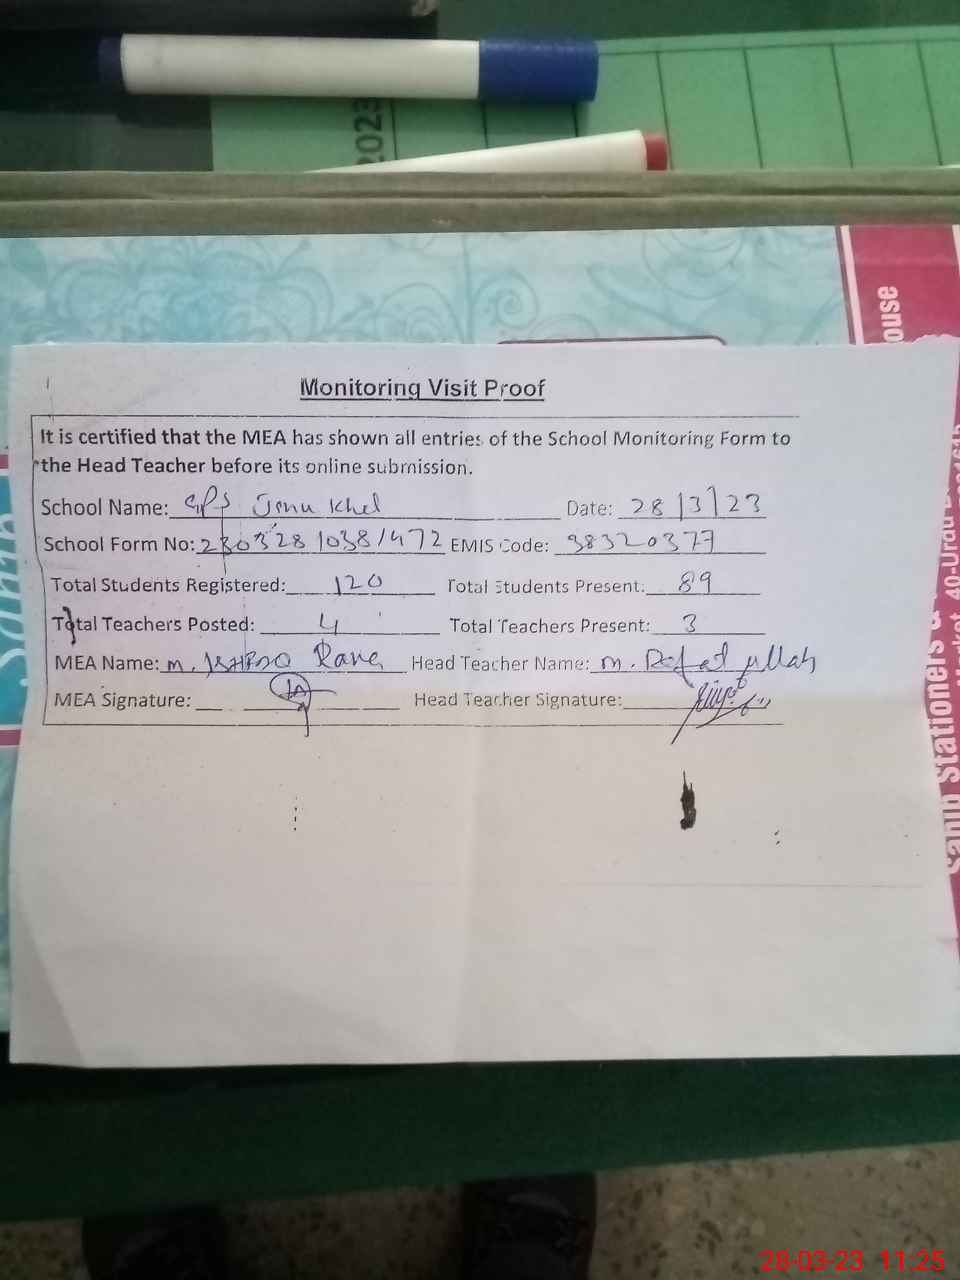 2023
ouse
Monitoring Visit Proof
It is certified that the MEA has shown all entries of the School Monitoring Form to
the Head Teacher before its online submission.
School Name: GPS Khel Date: 28/3/23
School Form No: 230328/038/472 EMIS Code: 38320377
Total Students Registered: 120 Total Students Present: 89
Total Teachers Posted: 4 Total Teachers Present: 3
MEA Name: M. Head Teacher Name: M. Refat ullah
MEA Signature: Head Teacher Signature:
Sahib Stationers &
40-Urdu
28-03-23 11:25